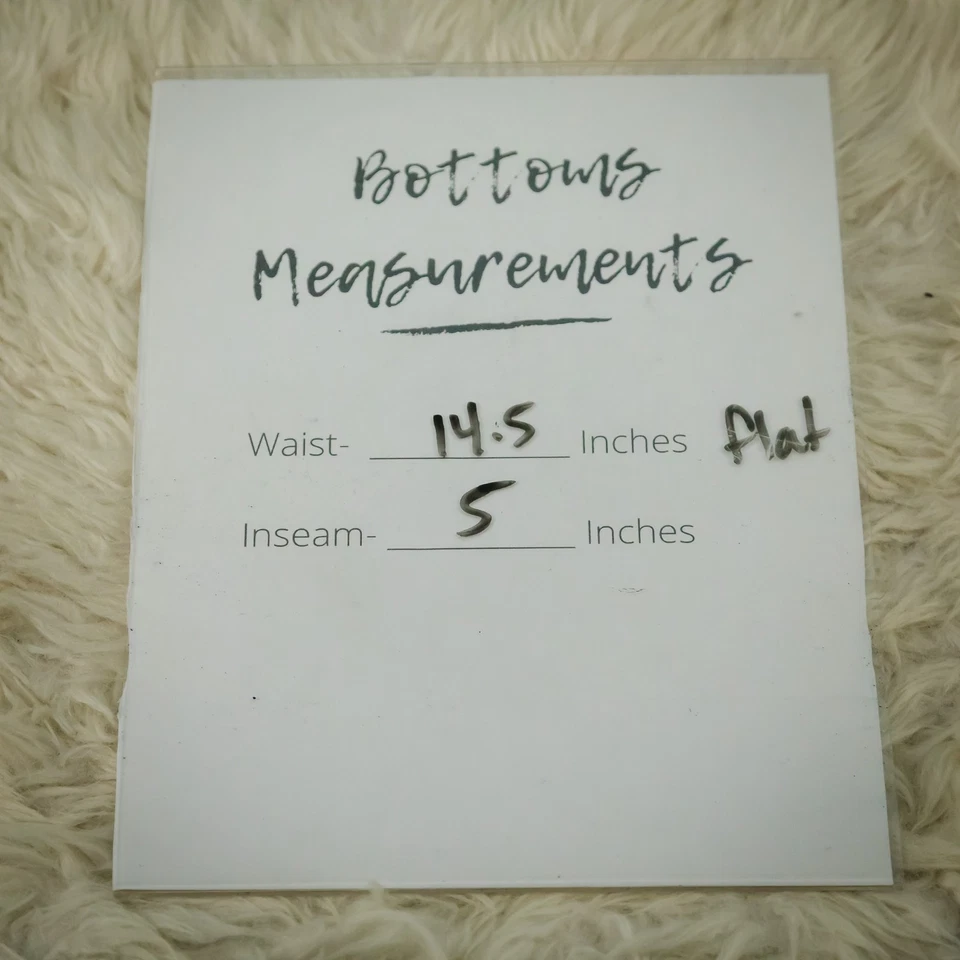 Bottoms
Measurements
Waist- 14.5 Inches flat
Inseam- 5 Inches